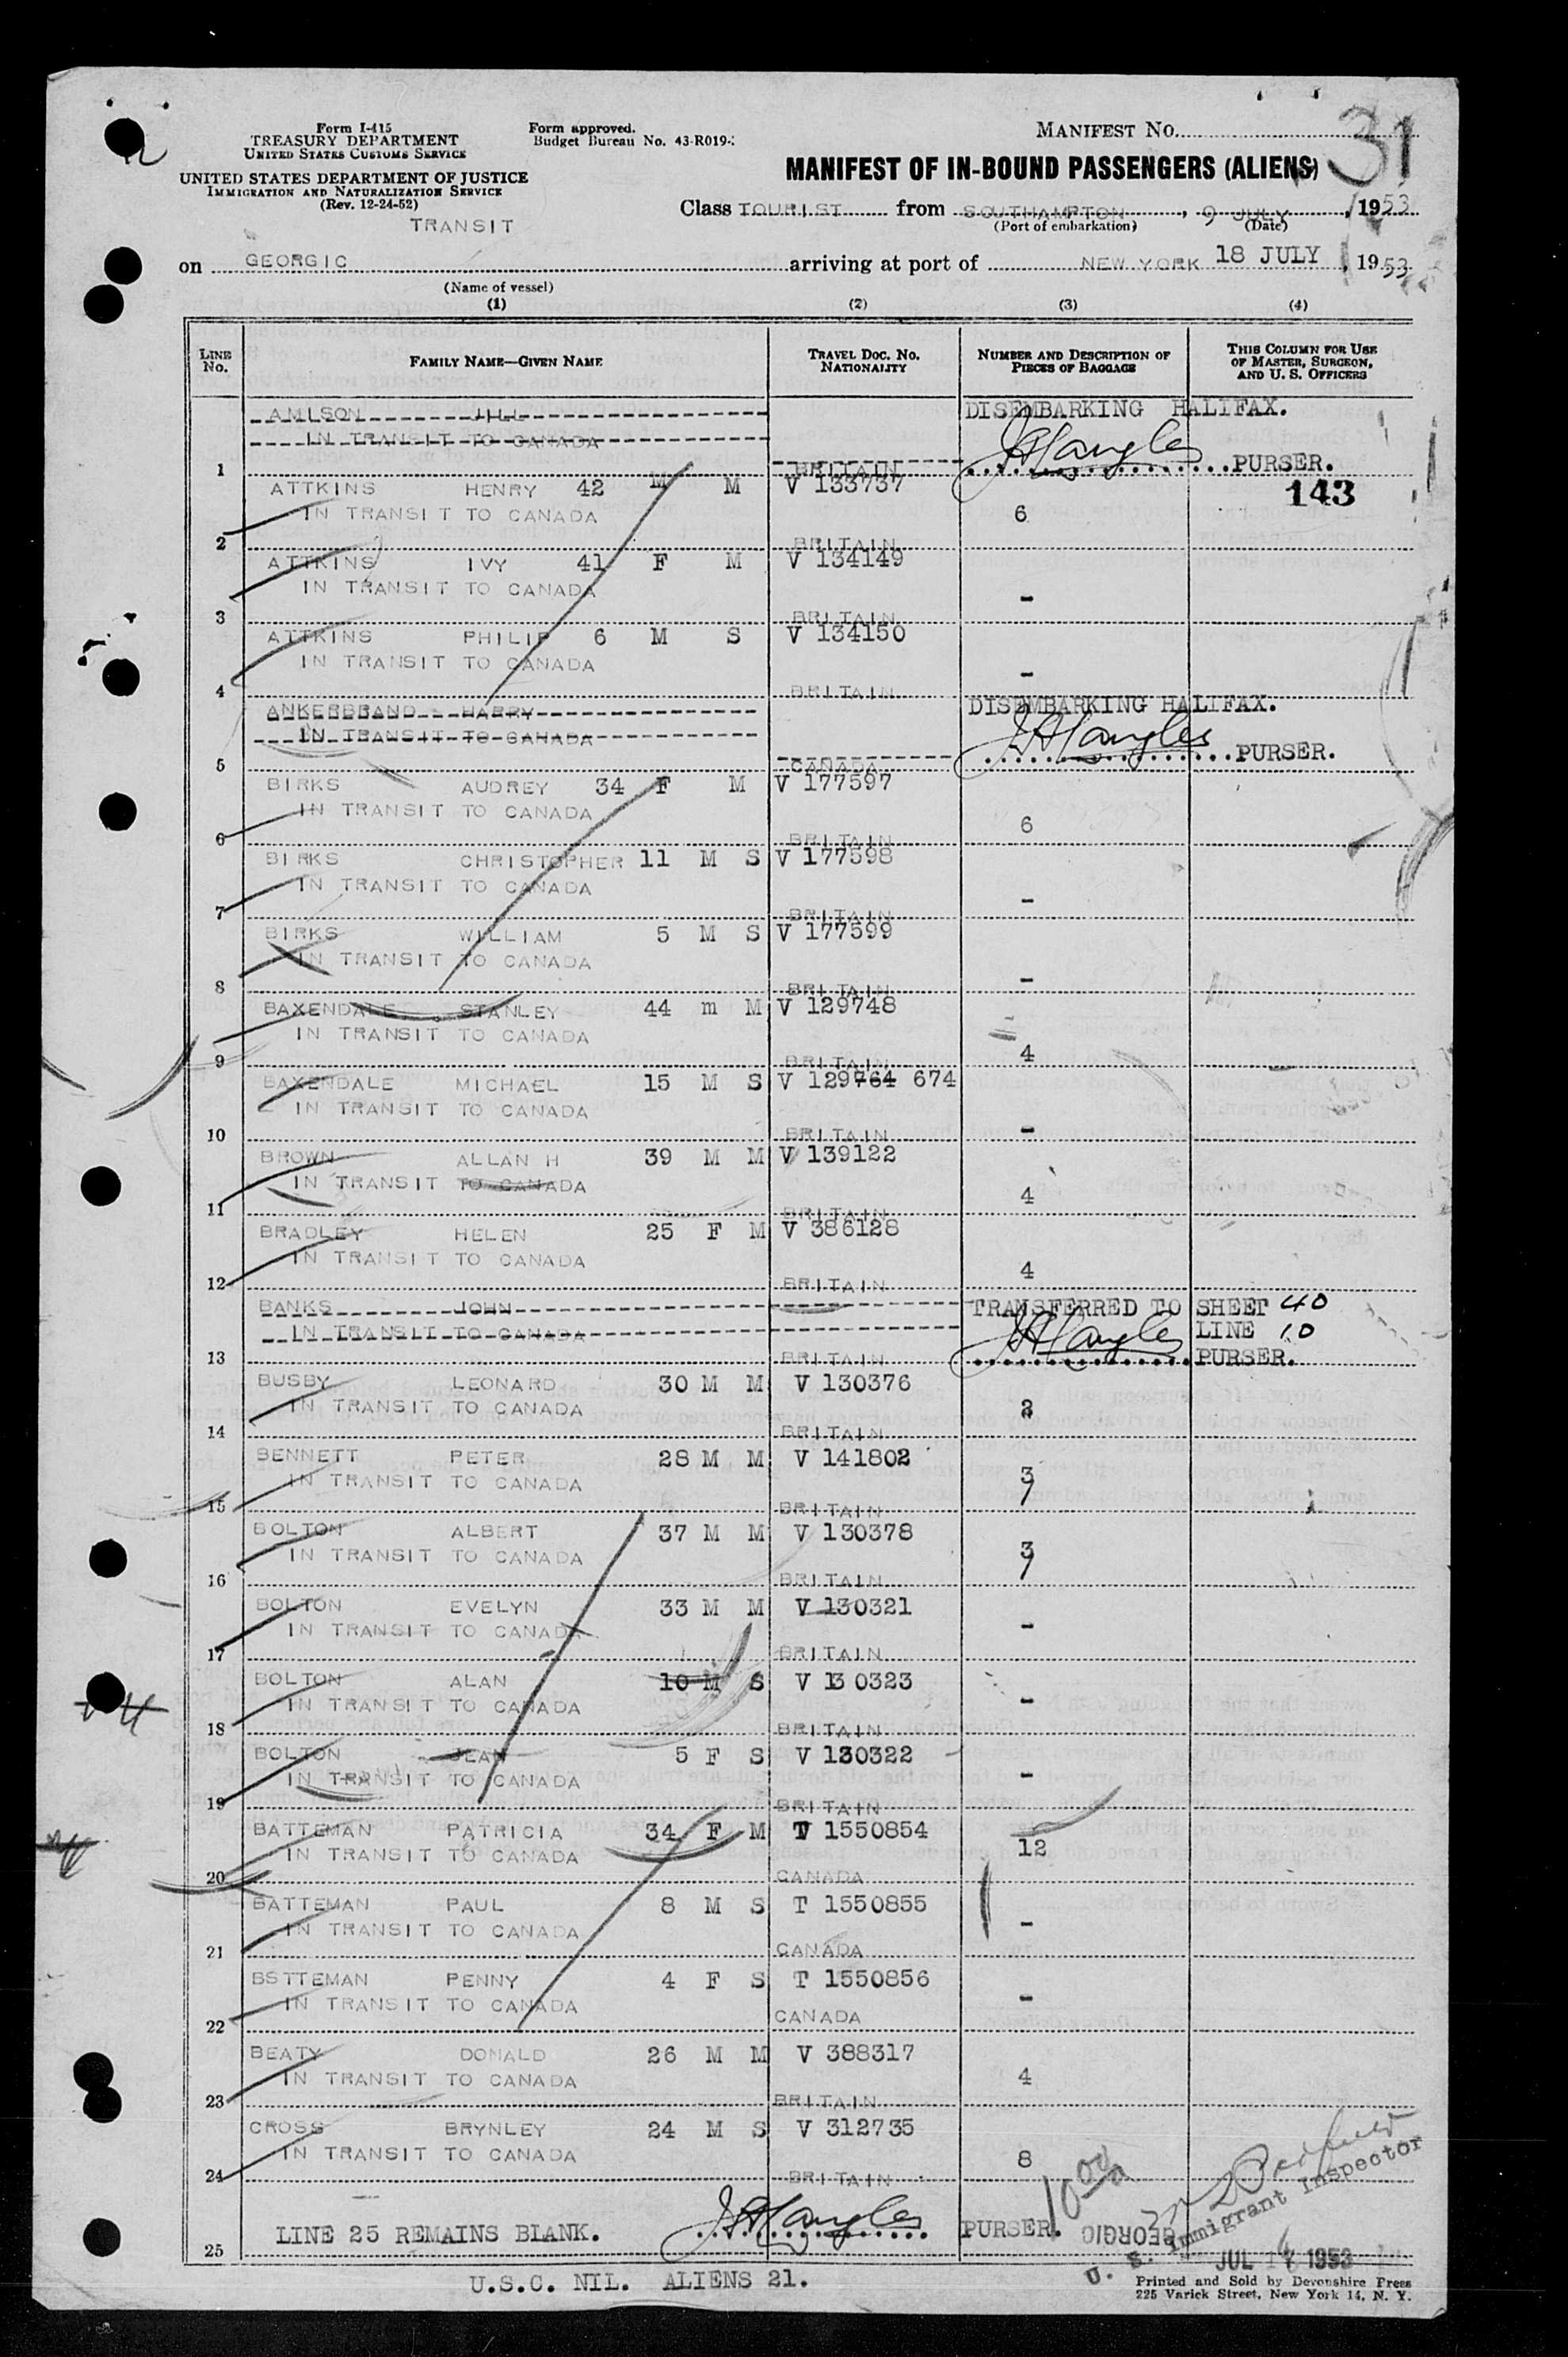 Form I-415
TREASURY DEPARTMENT
UNITED STATES CUSTOMS SERVICE
UNITED STATES DEPARTMENT OF JUSTICE
IMMIGRATION AND NATURALIZATION SERVICE
(Rev. 12-24-52)
TRANSIT
Form approved.
Budget Bureau No. 43-R019-
MANIFEST NO.
31
MANIFEST OF IN-BOUND PASSENGERS (ALIENS)
Class TOURIST from SOUTHAMPTON, 9 JULY, 1953
(Port of embarkation) (Date)
on GEORGIC arriving at port of NEW YORK 18 JULY, 1953
(Name of vessel)
(1) (2) (3) (4)
LINE No. FAMILY NAME—GIVEN NAME TRAVEL DOC. NO. NATIONALITY NUMBER AND DESCRIPTION OF PIECES OF BAGGAGE THIS COLUMN FOR USE OF MASTER, SURGEON, AND U. S. OFFICERS
AMLSON JILL DISEMBARKING HALIFAX.
IN TRANSIT TO CANADA
1 BRITAIN PURSER.
ATTKINS HENRY 42 M M V 133737 143
IN TRANSIT TO CANADA 6
2 BRITAIN
ATTKINS IVY 41 F M V 134149
IN TRANSIT TO CANADA -
3 BRITAIN
ATTKINS PHILIP 6 M S V 134150
IN TRANSIT TO CANADA -
4 BRITAIN
ANKERBRAND HARRY DISEMBARKING HALIFAX.
IN TRANSIT TO CANADA
5 CANADA PURSER.
BIRKS AUDREY 34 F M V 177597
IN TRANSIT TO CANADA 6
6 BRITAIN
BIRKS CHRISTOPHER 11 M S V 177598
IN TRANSIT TO CANADA -
7 BRITAIN
BIRKS WILLIAM 5 M S V 177599
IN TRANSIT TO CANADA -
8 BRITAIN
BAXENDALE STANLEY 44 m M V 129748
IN TRANSIT TO CANADA 4
9 BRITAIN
BAXENDALE MICHAEL 15 M S V 129764 674
IN TRANSIT TO CANADA -
10 BRITAIN
BROWN ALLAN H 39 M M V 139122
IN TRANSIT TO CANADA 4
11 BRITAIN
BRADLEY HELEN 25 F M V 386128
IN TRANSIT TO CANADA 4
12 BRITAIN
BANKS JOHN TRANSFERRED TO SHEET 40
IN TRANSIT TO CANADA LINE 10
13 BRITAIN PURSER.
BUSBY LEONARD 30 M M V 130376
IN TRANSIT TO CANADA
14 BRITAIN
BENNETT PETER 28 M M V 141802
IN TRANSIT TO CANADA 3
15 BRITAIN
BOLTON ALBERT 37 M M V 130378
IN TRANSIT TO CANADA 3
16 BRITAIN
BOLTON EVELYN 33 M M V 130321
IN TRANSIT TO CANADA -
17 BRITAIN
BOLTON ALAN 10 M S V 130323
IN TRANSIT TO CANADA -
18 BRITAIN
BOLTON JEAN 5 F S V 130322
IN TRANSIT TO CANADA -
19 BRITAIN
BATTEMAN PATRICIA 34 F M T 1550854
IN TRANSIT TO CANADA 12
20 CANADA
BATTEMAN PAUL 8 M S T 1550855
IN TRANSIT TO CANADA -
21 CANADA
BSTTEMAN PENNY 4 F S T 1550856
IN TRANSIT TO CANADA -
22 CANADA
BEATY DONALD 26 M M V 388317
IN TRANSIT TO CANADA 4
23 BRITAIN
CROSS BRYNLEY 24 M S V 312735
IN TRANSIT TO CANADA 8
24 BRITAIN
25 LINE 25 REMAINS BLANK. PURSER.
GEORGIC
U. S. Immigrant Inspector
JUL 1953
U.S.C. NIL. ALIENS 21.
Printed and Sold by Devonshire Press
225 Varick Street, New York 14, N. Y.